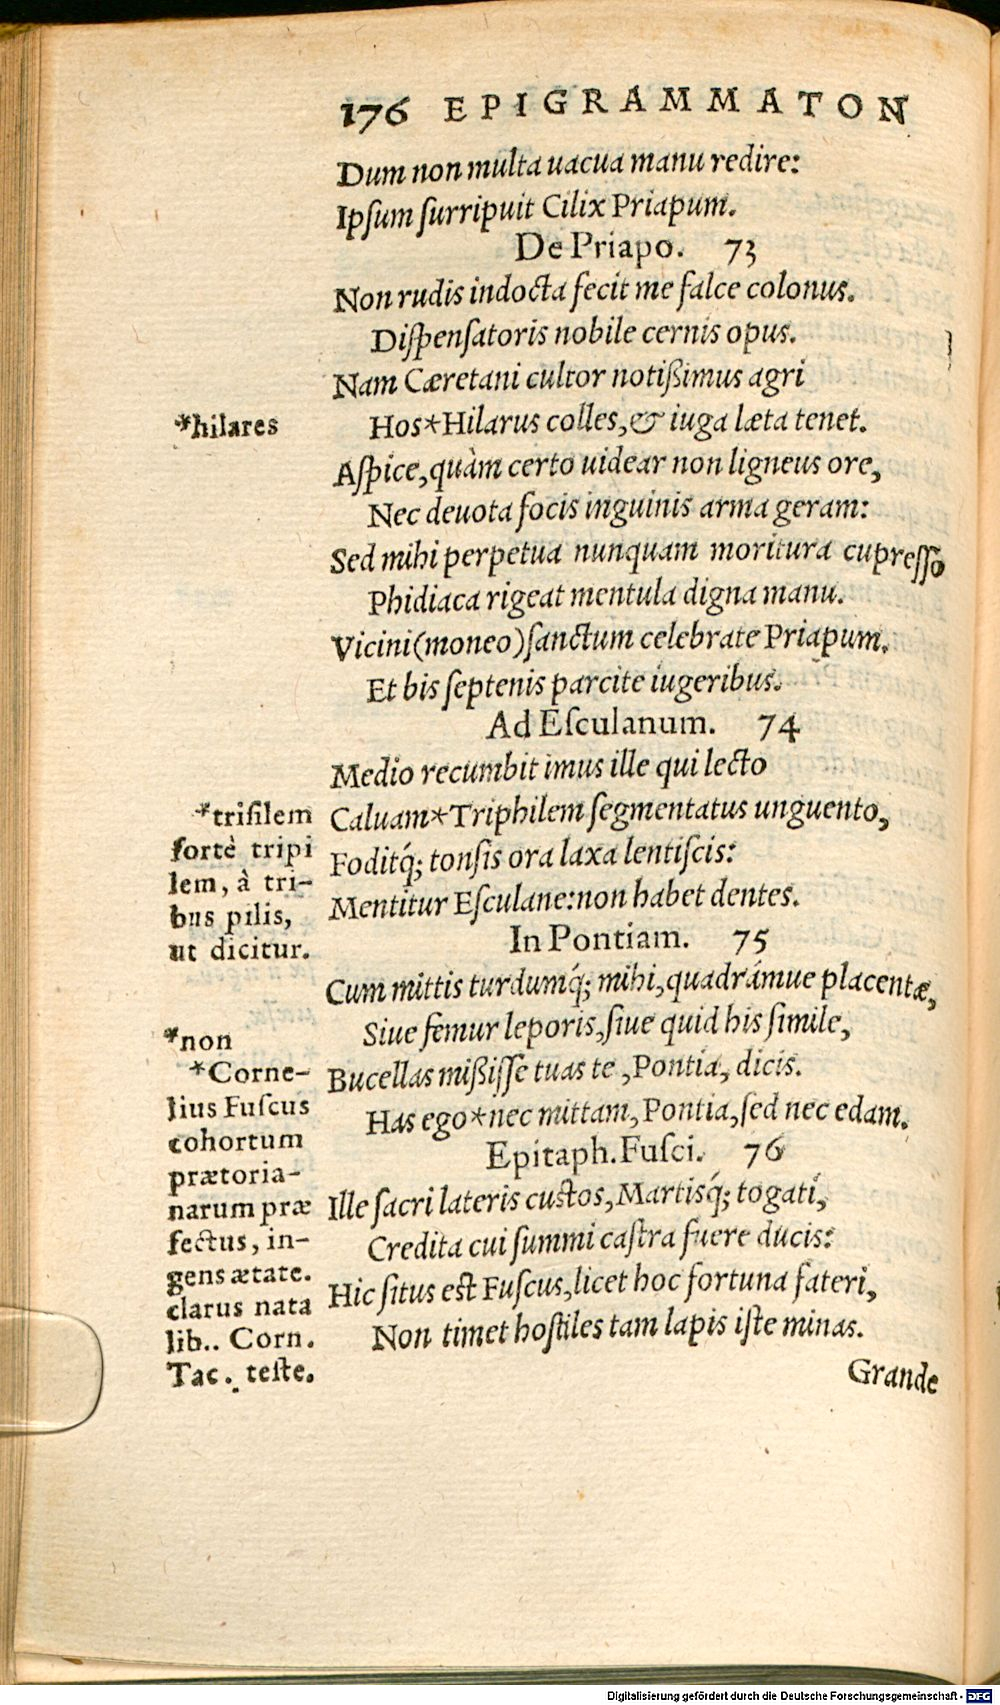 176 EPIGRAMMATON
Dum non multa uacua manu redire:
Ipſum ſurripuit Cilix Priapum.
De Priapo. 73
Non rudis indocta fecit me falce colonus.
Diſpenſatoris nobile cernis opus.
Nam Cæretani cultor notißimus agri
*hilares
Hos*Hilarus colles, & iuga læta tenet.
Aſpice, quàm certo uidear non ligneus ore,
Nec deuota focis inguinis arma geram:
Sed mihi perpetua nunquam moritura cupreſſo
Phidiaca rigeat mentula digna manu.
Vicini(moneo)ſanctum celebrate Priapum.
Et bis ſeptenis parcite iugeribus.
Ad Eſculanum. 74
Medio recumbit imus ille qui lecto
Caluam*Triphilem ſegmentatus unguento,
Foditq́; tonſis ora laxa lentiſcis:
Mentitur Eſculane:non habet dentes.
*triſilem
fortè tripi
lem, à tri-
bus pilis,
ut dicitur.
In Pontiam. 75
Cum mittis turdumq́; mihi, quadrámue placentæ,
Siue femur leporis, ſiue quid his ſimile,
Bucellas mißiſſe tuas te, Pontia, dicis.
Has ego*nec mittam, Pontia, ſed nec edam.
*non
Epitaph. Fuſci. 76
Ille ſacri lateris cuſtos, Martisq́; togati,
Credita cui ſummi caſtra fuere ducis:
Hic ſitus eſt Fuſcus, licet hoc fortuna fateri,
Non timet hoſtiles tam lapis iſte minas.
*Corne-
lius Fuſcus
cohortum
prætoria-
narum præ
fectus, in-
gens ætate.
clarus nata
lib.. Corn.
Tac. teſte.
Grande
Digitalisierung gefördert durch die Deutsche Forschungsgemeinschaft - DFG